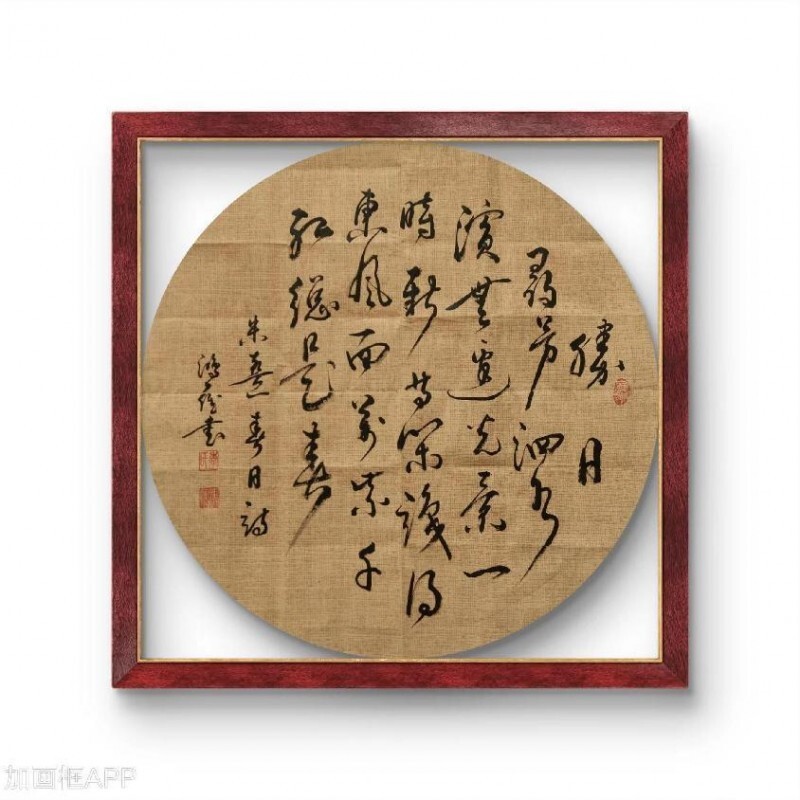 勝日
尋芳泗水
濱無邊光景一
時新等閒識得
東風面萬紫千
紅總是春
朱熹春日詩
鴻書
加画框APP